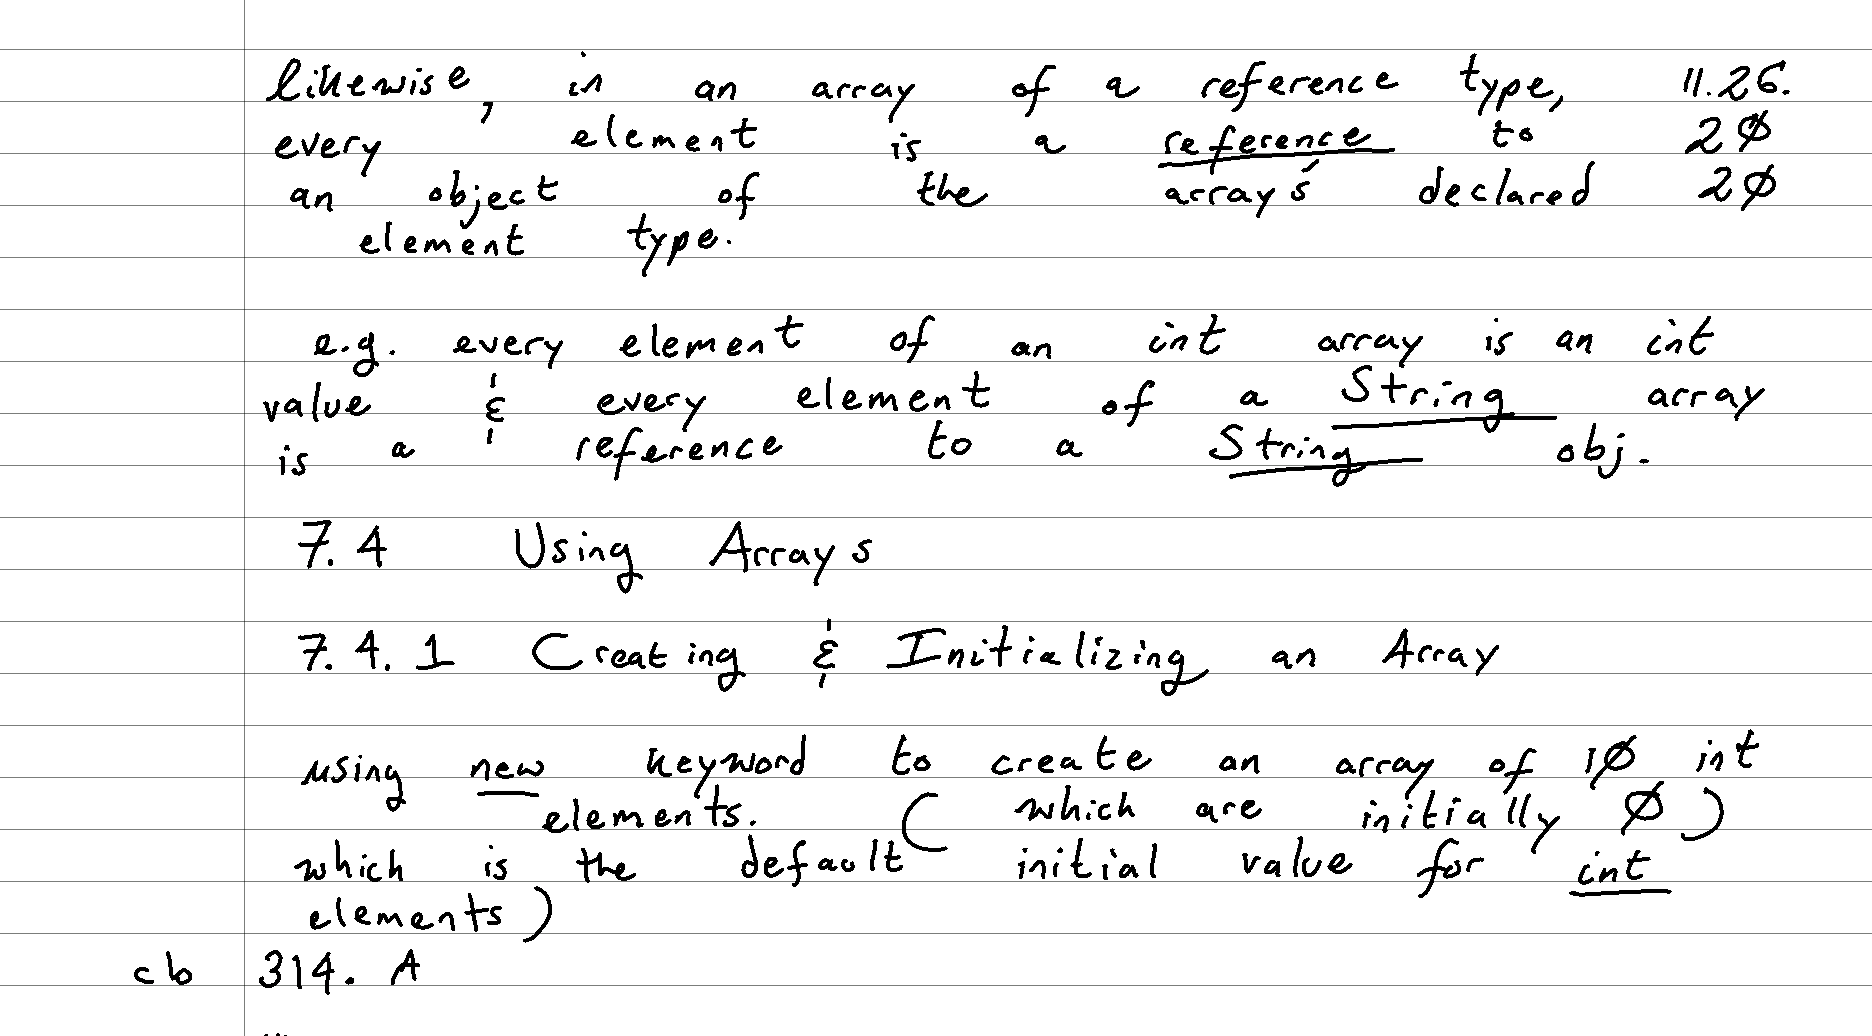 likewise, in an array of a reference type, 11.26.
every element is a reference to 2Ø
an object of the array's declared 2Ø
element type.
e.g. every element of an int array is an int
value & every element of a String array
is a reference to a String obj.
7.4 Using Arrays
7.4.1 Creating & Initializing an Array
using new keyword to create an array of 1Ø int
elements. ( which are initially Ø )
which is the default initial value for int
elements )
cb 314. A